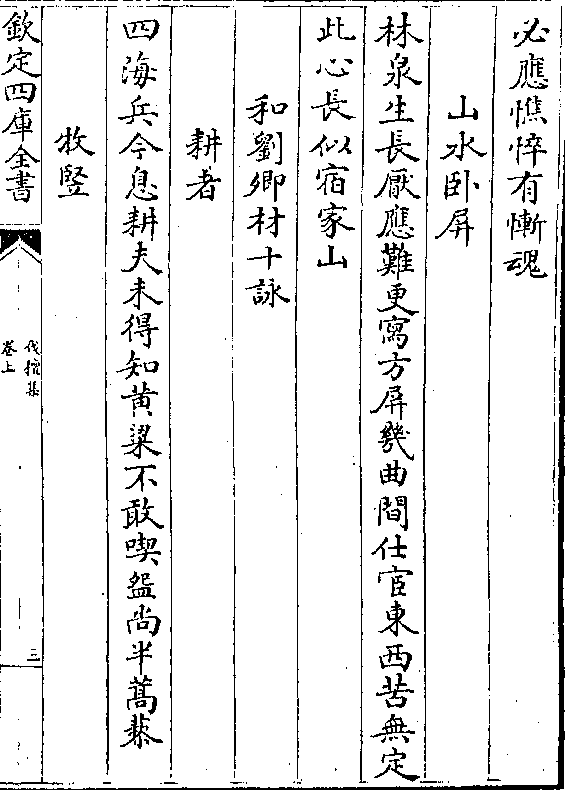 必應憔悴有慚魂
山水卧屏
林泉生長厭應難更寫方屏幾曲間仕宦東西苦無定
此心長似宿家山
和劉卿材十詠
耕者
四海兵今息耕夫未得知黄粱不敢喫盤尚半蒿藜
牧豎
欽定四庫全書
伐檀集
卷上
三